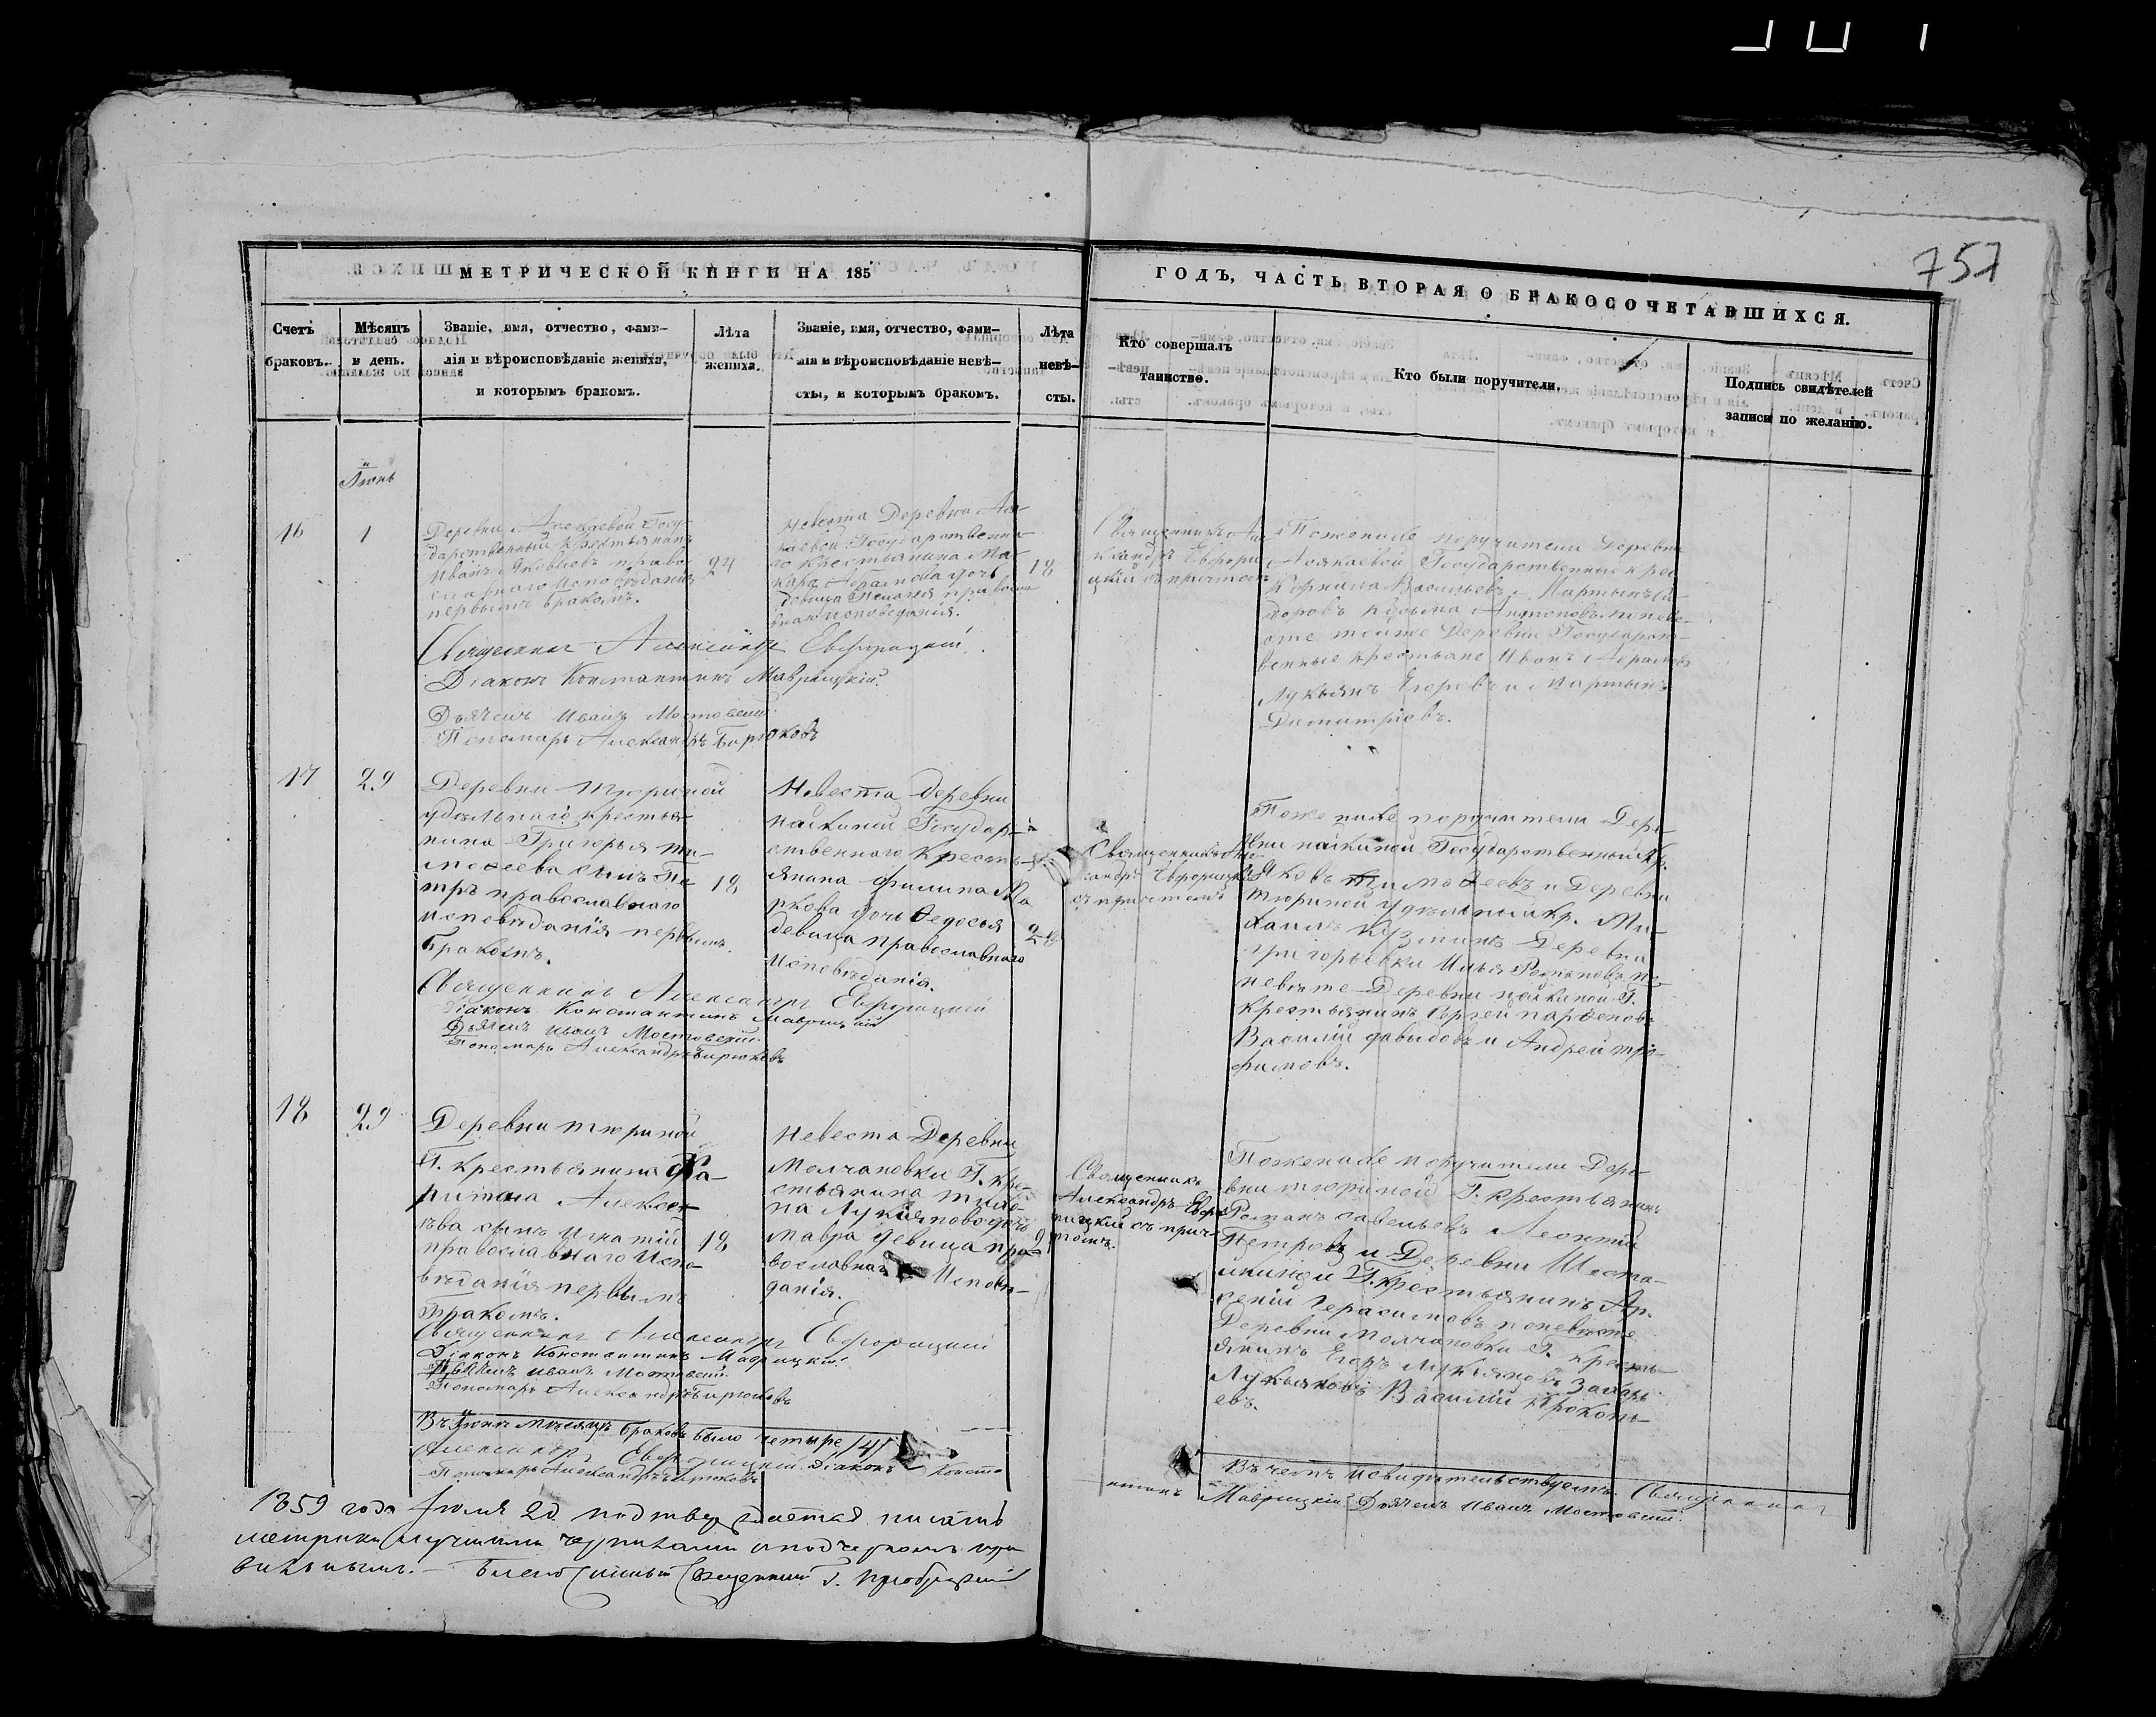 757
МЕТРИЧЕСКОЙ КНИГИ НА 185
ГОДЪ, ЧАСТЬ ВТОРАЯ О БРАКОСОЧЕТАВШИХСЯ.
Счетъ
браковъ.
Мѣсяцъ
и день.
Званіе, имя, отчество, фами-
лія и вѣроисповѣданіе жениха,
и которымъ бракомъ.
Лѣта
жениха.
Званіе, имя, отчество, фами-
лія и вѣроисповѣданіе невѣ-
сты, и которымъ бракомъ.
Лѣта
невѣ-
сты.
Кто совершалъ
таинство.
Кто были поручители.
Подпись свидѣтелей
записи по желанію.
Іюнь
16
1
Деревни Госу-
дарственный крестьянинъ
Иванъ Яковлевъ право-
славнаго исповѣданія
первымъ бракомъ.
24
Невеста Деревни
Государственна-
го крестьянина Ма-
кара Абрамова дочь
девица Пелагея правосла
внаго исповеданія.
18
Священникъ Але
ксандръ Еворицкій
съ причтомъ
По женихе поручители Деревни
Государственные крес
Корнила Васильевъ, Мартынъ
доровъ Кузьма Антоновъ по неве-
сте тойже Деревни Государст-
венные крестьяне Иванъ Абрамовъ
Лукьянъ Егоровъ и Мартынъ
Димитріевъ.
Священникъ Александръ
Діаконъ Константинъ Маврицкій
Дьячекъ Иванъ Мостовскій
Пономарь Александръ Бирюковъ
17
29
Деревни Тюриной
удѣльнаго крестья-
нина Григорья Ти-
мофеева сынъ Пе-
тръ православнаго
исповѣданія первымъ
бракомъ.
18
Невеста деревни
Пайкиной Государ-
ственнаго кресть-
янина Филипа Ма
ркова дочь Ѳедосья
девица православнаго
исповѣданія.
Священникъ
съ причтомъ
По женихе поручители Дере-
вни Пайкиной Государственный кр.
Яковъ Тимофеевъ и Деревни
Тюриной удѣльный кр. Ми-
хаилъ Кузминъ Деревни
Григорьевки Илья Романовъ по
невѣсте Деревни Пайкиной Г.
крестьянинъ Сергей Парфеновъ
Василій Давыдовъ и Андрей Тро-
фимовъ.
Священникъ Александръ
Діаконъ Константинъ Маврицкій
Дьячекъ Иванъ Мостовскій
Пономарь Александръ Бирюковъ
18
29
Деревни Тюриной
Г. крестьянина Ха-
ритона Алексе-
ѣва сынъ Игнатій
православнаго испо-
вѣданія первымъ
бракомъ.
18
Невеста Деревни
Молчановки Г. кре-
стьянина
на Лукіянова дочь
Мавра девица пра-
вославнаго Исповѣ-
данія.
Священникъ
Александръ
рицкій съ прич-
томъ.
По женихе поручители Дере-
вни Тюриной Г. крестьянинъ
Романъ Савельевъ Леонтій
Петровъ и Деревни
Г. крестьянинъ Ар-
сеній Герасимовъ по невѣсте
Деревни Молчановки Г. кресть-
янинъ Егоръ Лукьяновъ Захаръ
Лукьяновъ Василій Прокопь-
евъ.
Священникъ Александръ
Діаконъ Константинъ Маврицкій
Дьячекъ Иванъ Мостовскій
Пономарь Александръ Бирюковъ
Въ Іюнѣ мѣсяцѣ браковъ было четыре /4/
Въ чемъ и свидѣтельствуемъ. Священникъ
Александръ Діаконъ Конста
нтинъ Маврицкій Дьячекъ Иванъ Мостовскій.
Пономарь Александръ Бирюковъ
1859 года Іюля 20 подтверждается писать
метрики лучшими чернилами и подчеркомъ пра
вильнымъ. – Благочинный Священникъ